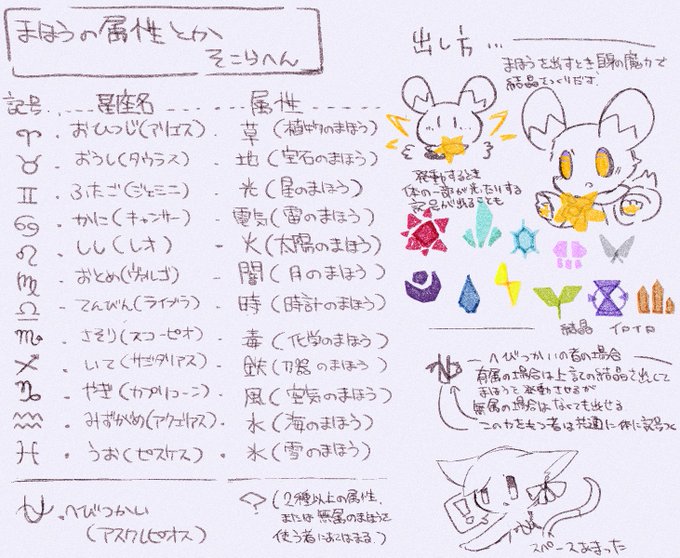 まほうの属性とか
そこらへん
記号 星座名 属性
♈ ・ おひつじ(アリエス) ・ 草(植物のまほう)
♉ ・ おうし(タウラス) ・ 地(宝石のまほう)
♊ ・ ふたご(ジェミニ) ・ 光(星のまほう)
♋ ・ かに(キャンサー) ・ 電気(雷のまほう)
♌ ・ しし(レオ) ・ 火(太陽のまほう)
♍ ・ おとめ(ヴィルゴ) ・ 闇(月のまほう)
♎ ・ てんびん(ライブラ) ・ 時(時計のまほう)
♏ ・ さそり(スコーピオ) ・ 毒(化学のまほう)
♐ ・ いて(サジタリアス) ・ 鉄(刀器のまほう)
♑ ・ やぎ(カプリコーン) ・ 風(空気のまほう)
♒ ・ みずがめ(アクエリアス) ・ 水(海のまほう)
♓ ・ うお(ピスケス) ・ 氷(雪のまほう)
⛎ ・ へびつかい
(アスクレピオス)
(2種以上の属性、
または無属のまほうを
使う者にあてはまる。)
出し方…
まほうを出すとき自身の魔力で
結晶をつくりだす。
発動するとき
体の一部が光ったりする
記号が出ることも
結晶 イロイロ
へびつかいの者の場合
有属の場合は上記の結晶を出して
まほうを発動させるが
無属の場合はなくても出せる
この力をもつ者は共通に体に記号つく
スペースあまった